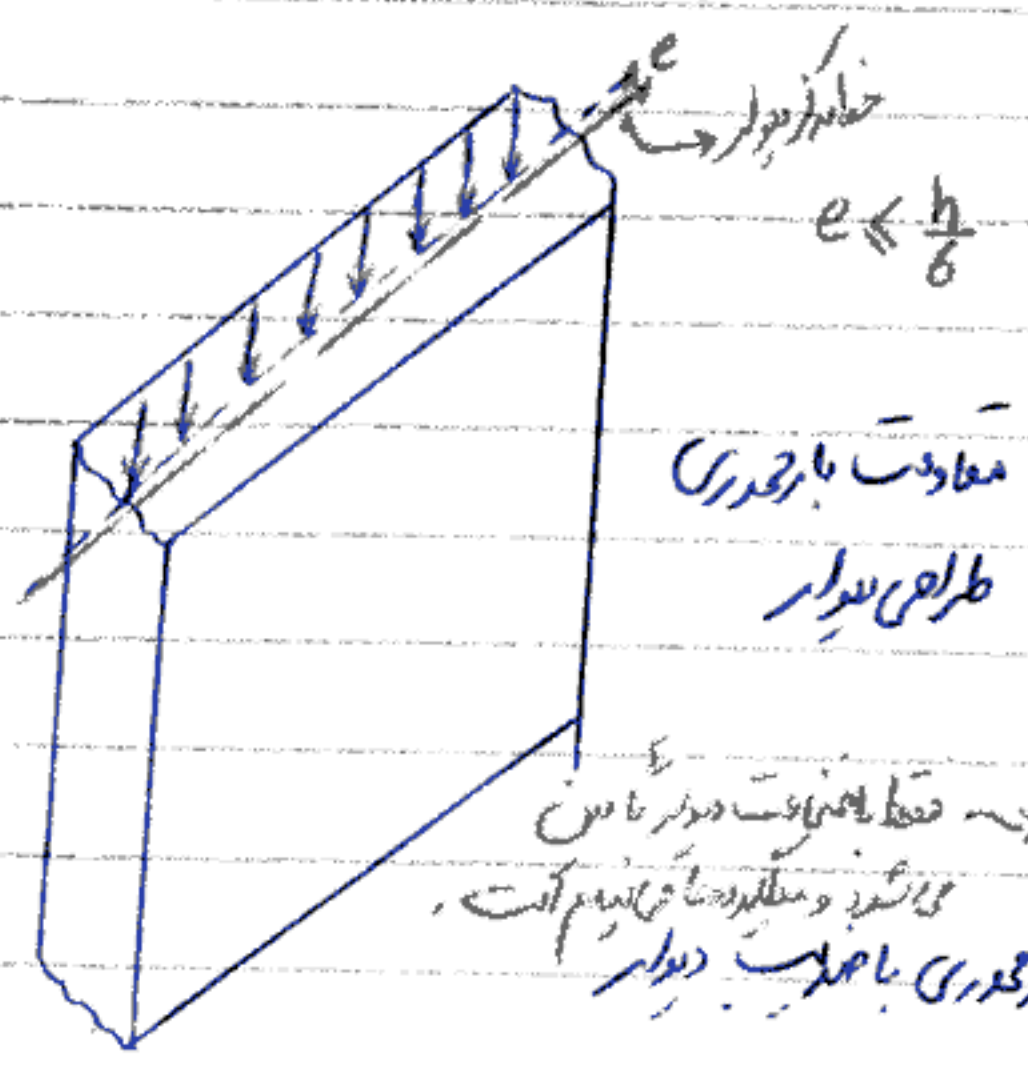 e
خط مرکز دیوار
e ≤ h/6
مقاومت بار محوری
طراحی دیوار
فقط با ضخامت دیوار تأمین
می‌شود و میلگردها
محوری با ضخامت دیوار